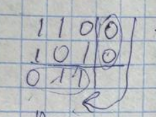 1 1 0 0
1 0 1 0
0 1 1